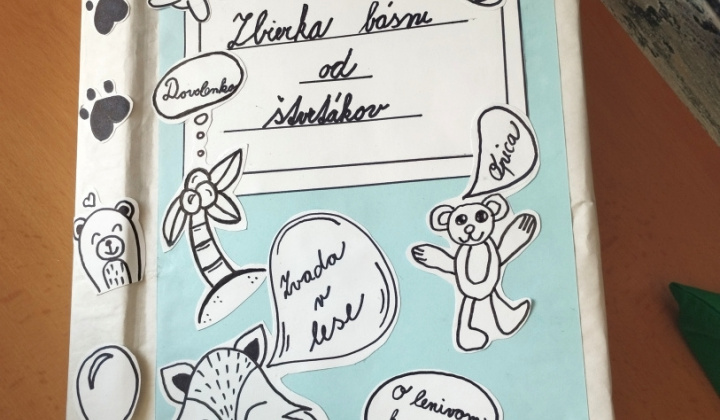 Zbierka básní
od
štvrtákov
Dovolenka
Opica
Zvada
v
lese
O lenivom